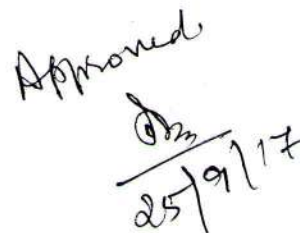 Approved
25/9/17